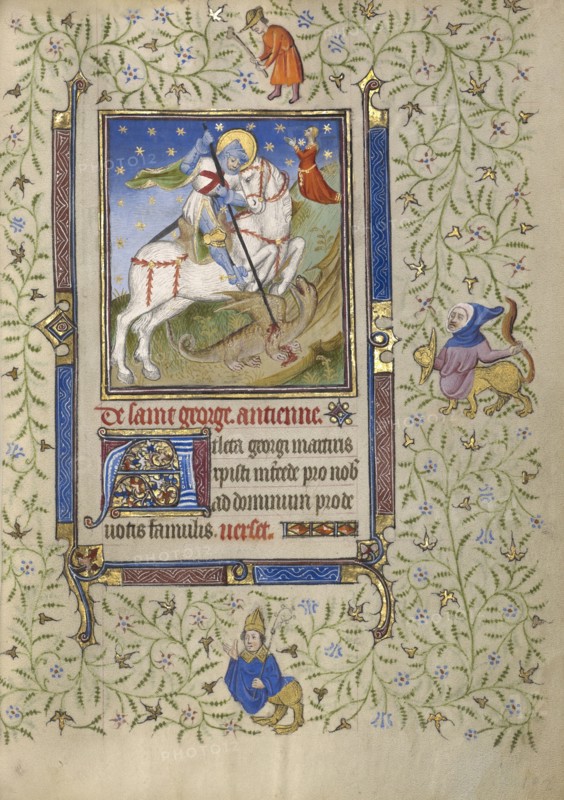 De saint george. antienne.
Atleta georgi martiris
xpisti mercede pro nob
ad dominum pro de
uotis famulis. verset.
PHOTO12